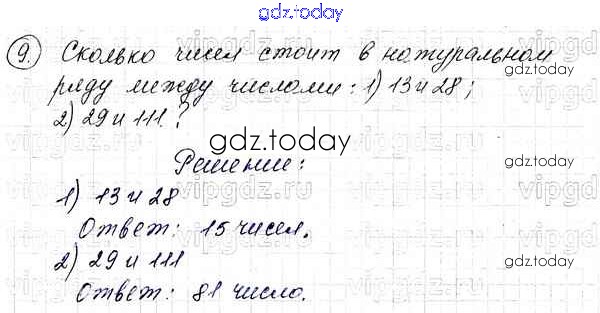 gdz.today
9. Сколько чисел стоит в натуральном
ряду между числами: 1) 13 и 28;
2) 29 и 111.?
gdz.today
gdz.today
Решение:
1) 13 и 28
Ответ: 15 чисел.
gdz.today
2) 29 и 111
Ответ: 81 число.
gdz.today